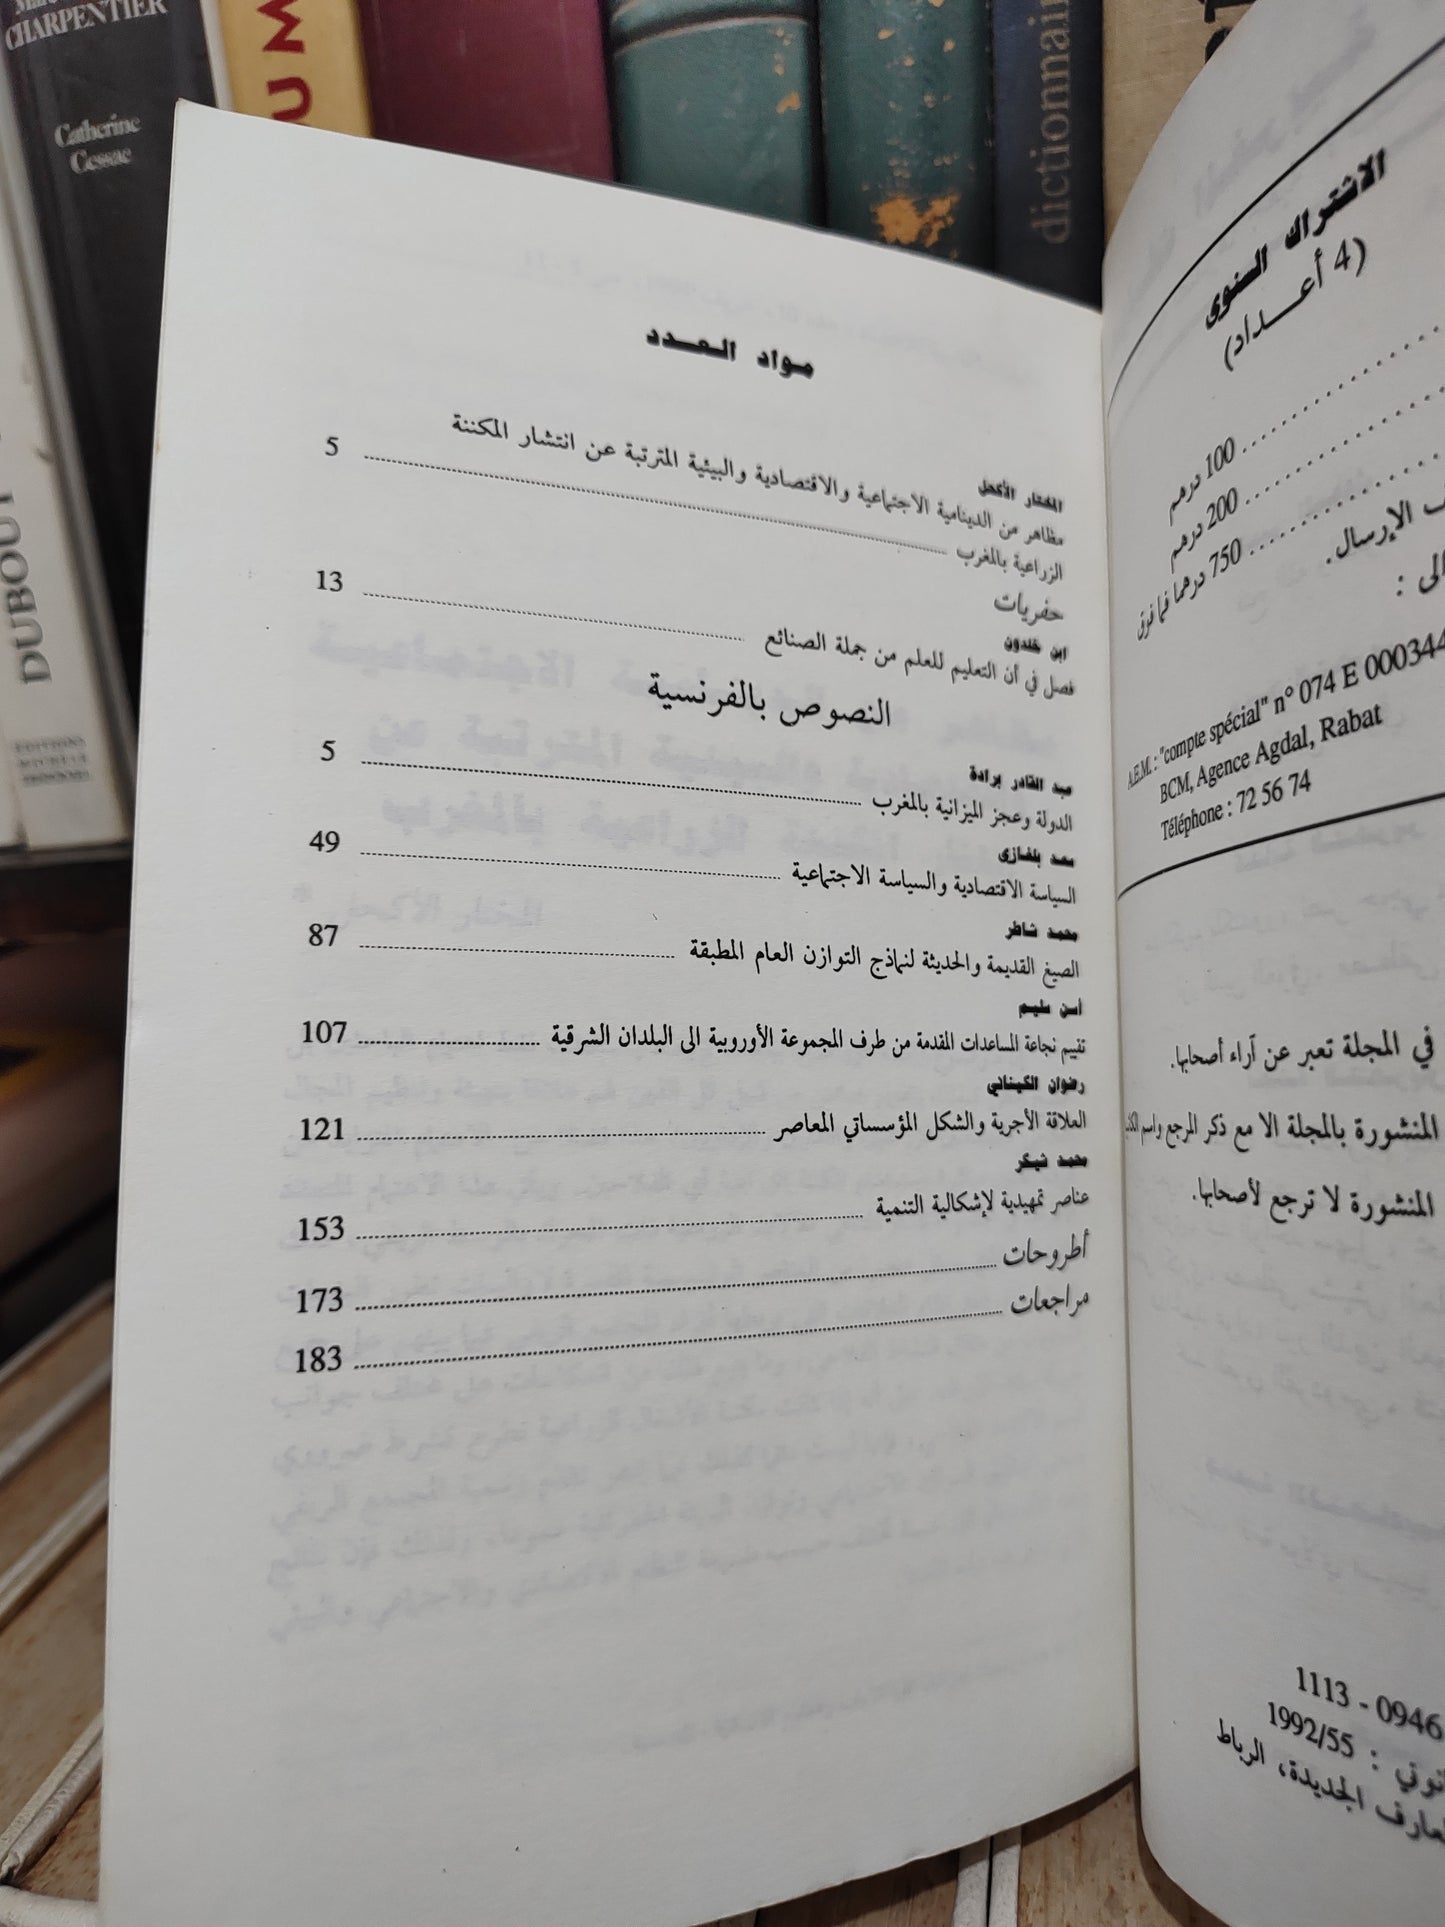 CHARPENTIER
Catherine
Cessac
UM
dictionnair
DUBOUT
EDITIONS
MICHELE
مواد العدد
المختار الأكحل
مظاهر من الدينامية الاجتماعية والاقتصادية والبيئية المترتبة عن انتشار المكننة
الزراعية بالمغرب 5
حفريات
ابن خلدون
فصل في أن التعليم للعلم من جملة الصنائع 13
النصوص بالفرنسية
عبد القادر برادة
الدولة وعجز الميزانية بالمغرب 5
سعد بلغازي
السياسة الاقتصادية والسياسة الاجتماعية 49
محمد شاطر
الصيغ القديمة والحديثة لنماذج التوازن العام المطبقة 87
أمين سليم
تقييم نجاعة المساعدات المقدمة من طرف المجموعة الأوروبية الى البلدان الشرقية 107
رضوان الكيناني
العلاقة الأجرية والشكل المؤسساتي المعاصر 121
محمد شيكر
عناصر تمهيدية لإشكالية التنمية 153
أطروحات 173
مراجعات 183
الاشتراك السنوي
(4 أعداد)
100 درهم
200 درهم
750 درهما فما فوق
الإرسال.
الى :
A.E.M. : "compte spécial" n° 074 E 000344
BCM, Agence Agdal, Rabat
Téléphone : 72 56 74
في المجلة تعبر عن آراء أصحابها.
المنشورة بالمجلة الا مع ذكر المرجع واسم
المنشورة لا ترجع لأصحابها.
1113 - 0946
1992/55 :
الجديدة، الرباط